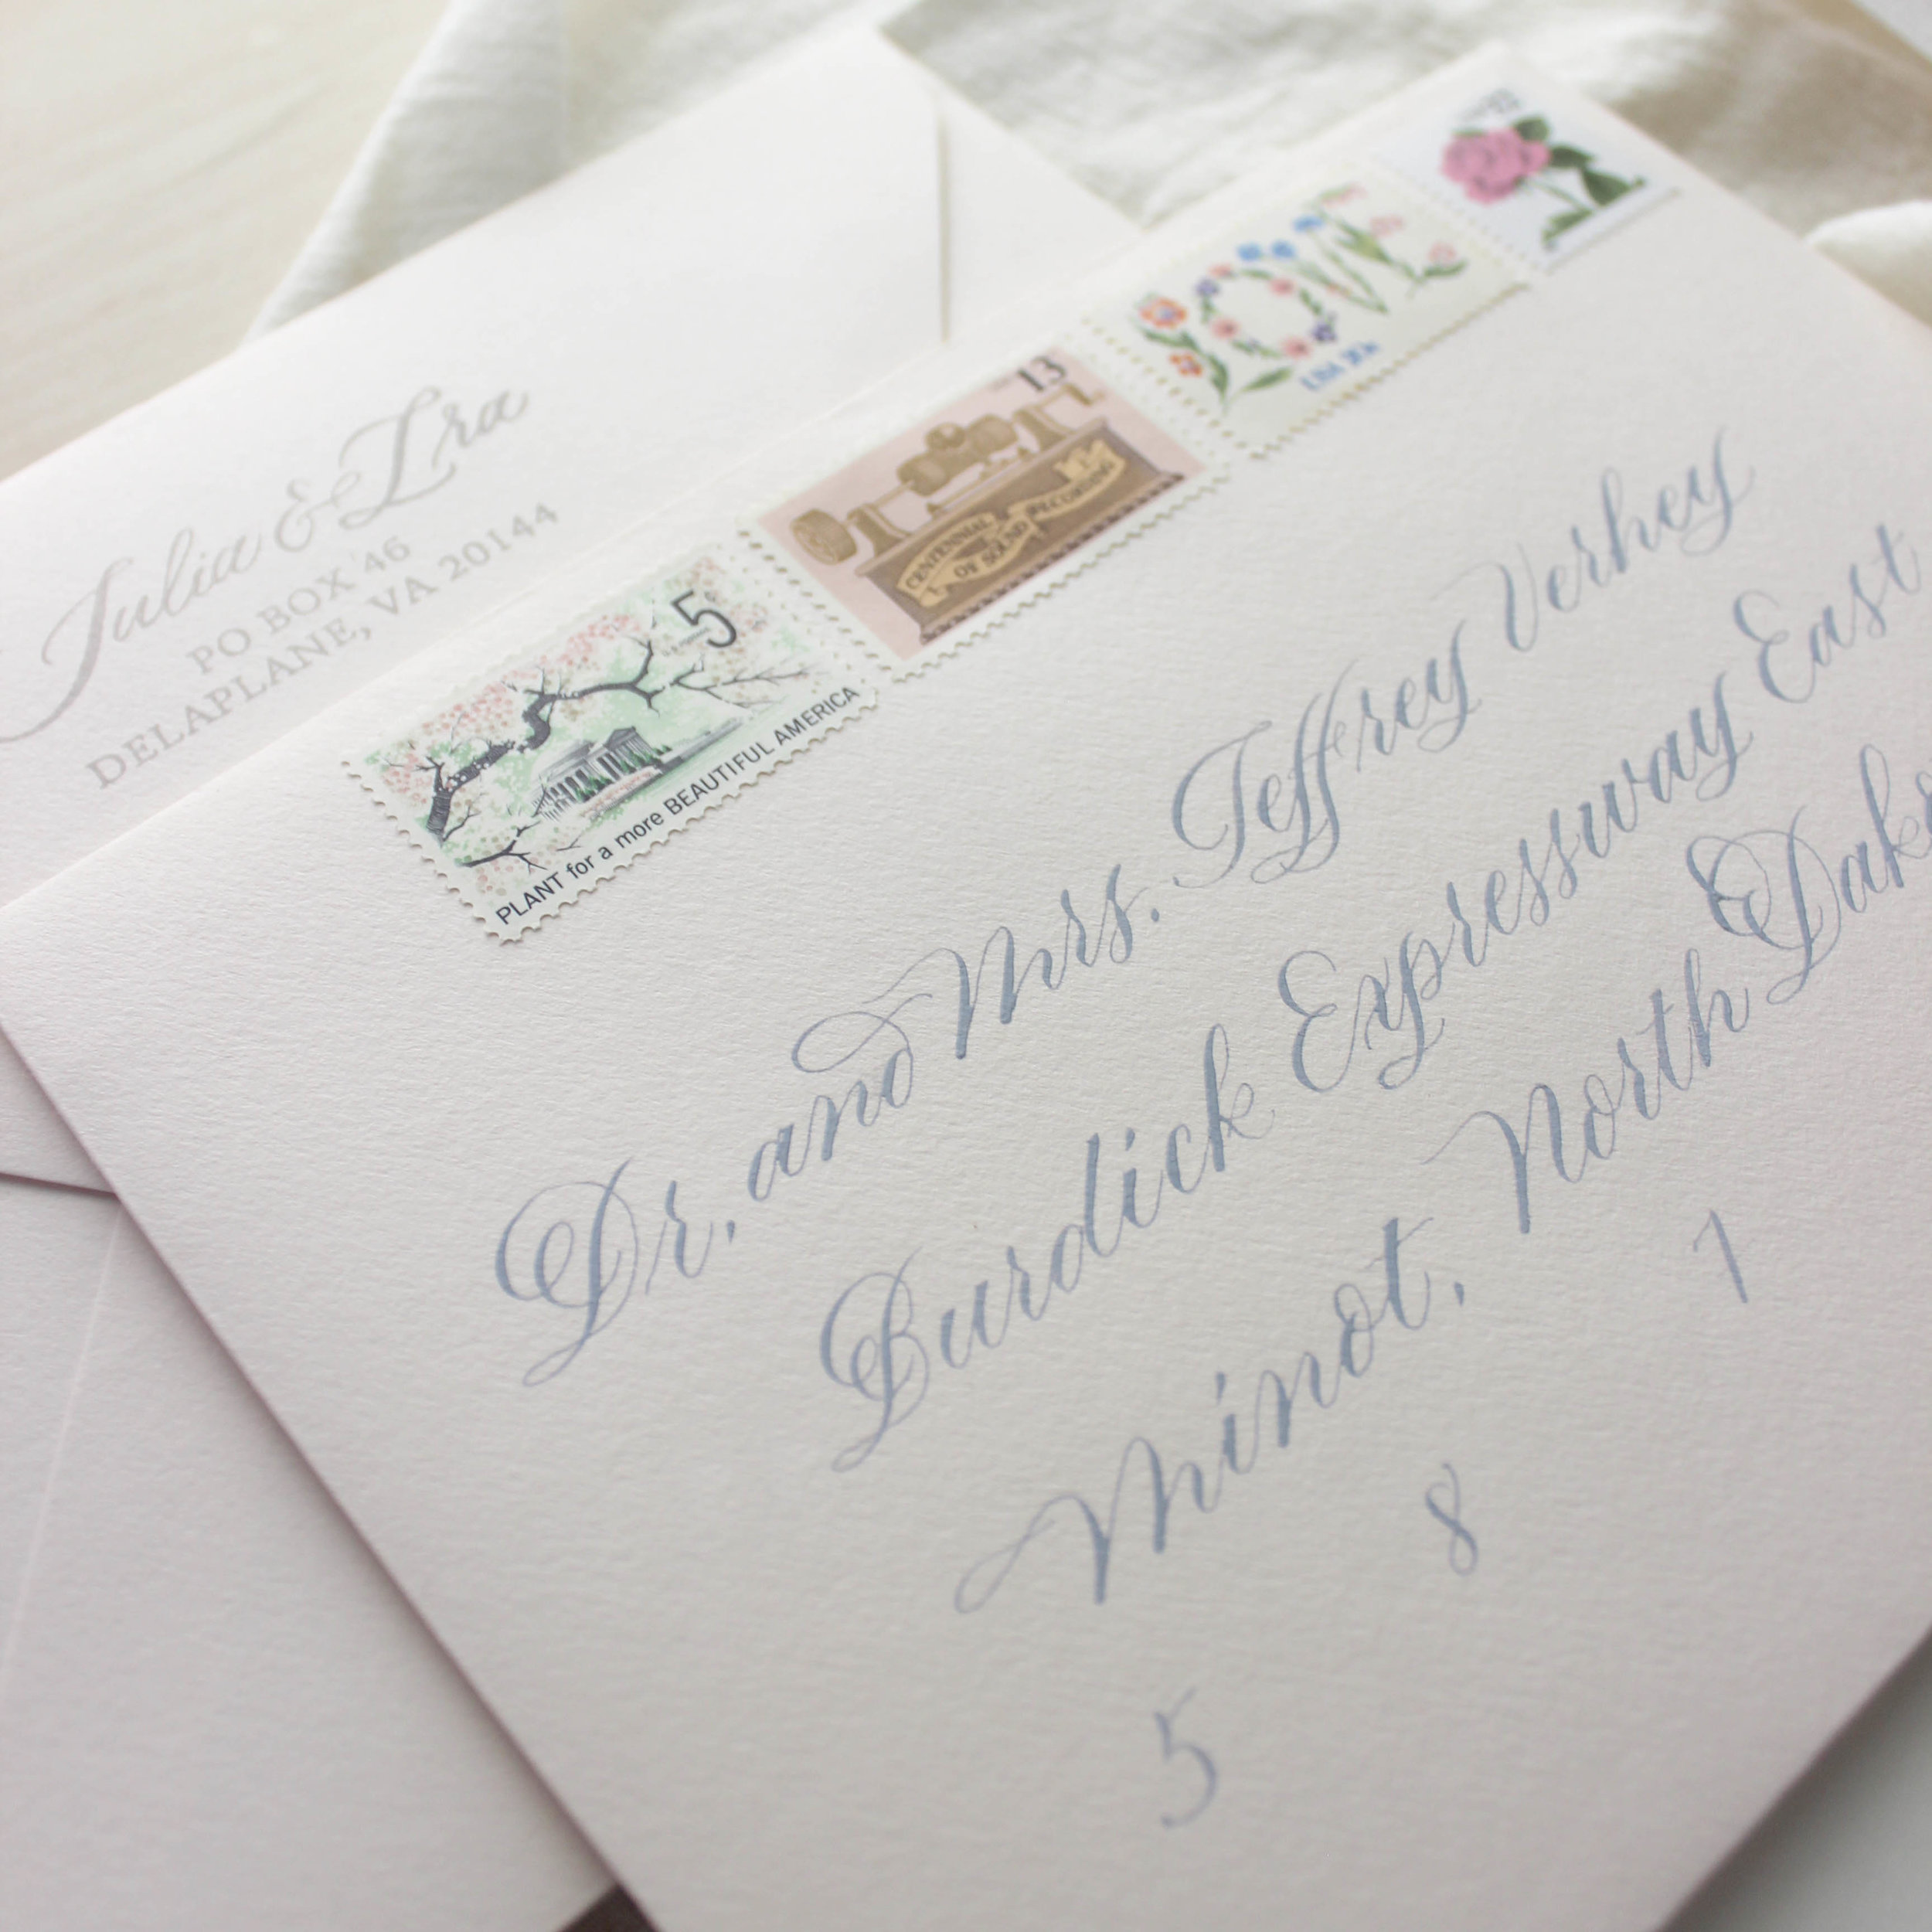 Julia & Ira
PO BOX 46
DELAPLANE, VA 20144
5
PLANT for a more BEAUTIFUL AMERICA
13
CENTENNIAL
OF SOUND RECORDING
LOVE
USA 20c
Dr. and Mrs. Jeffrey Verhey
Burdick Expressway East
Minot, North Dako
5 8 7